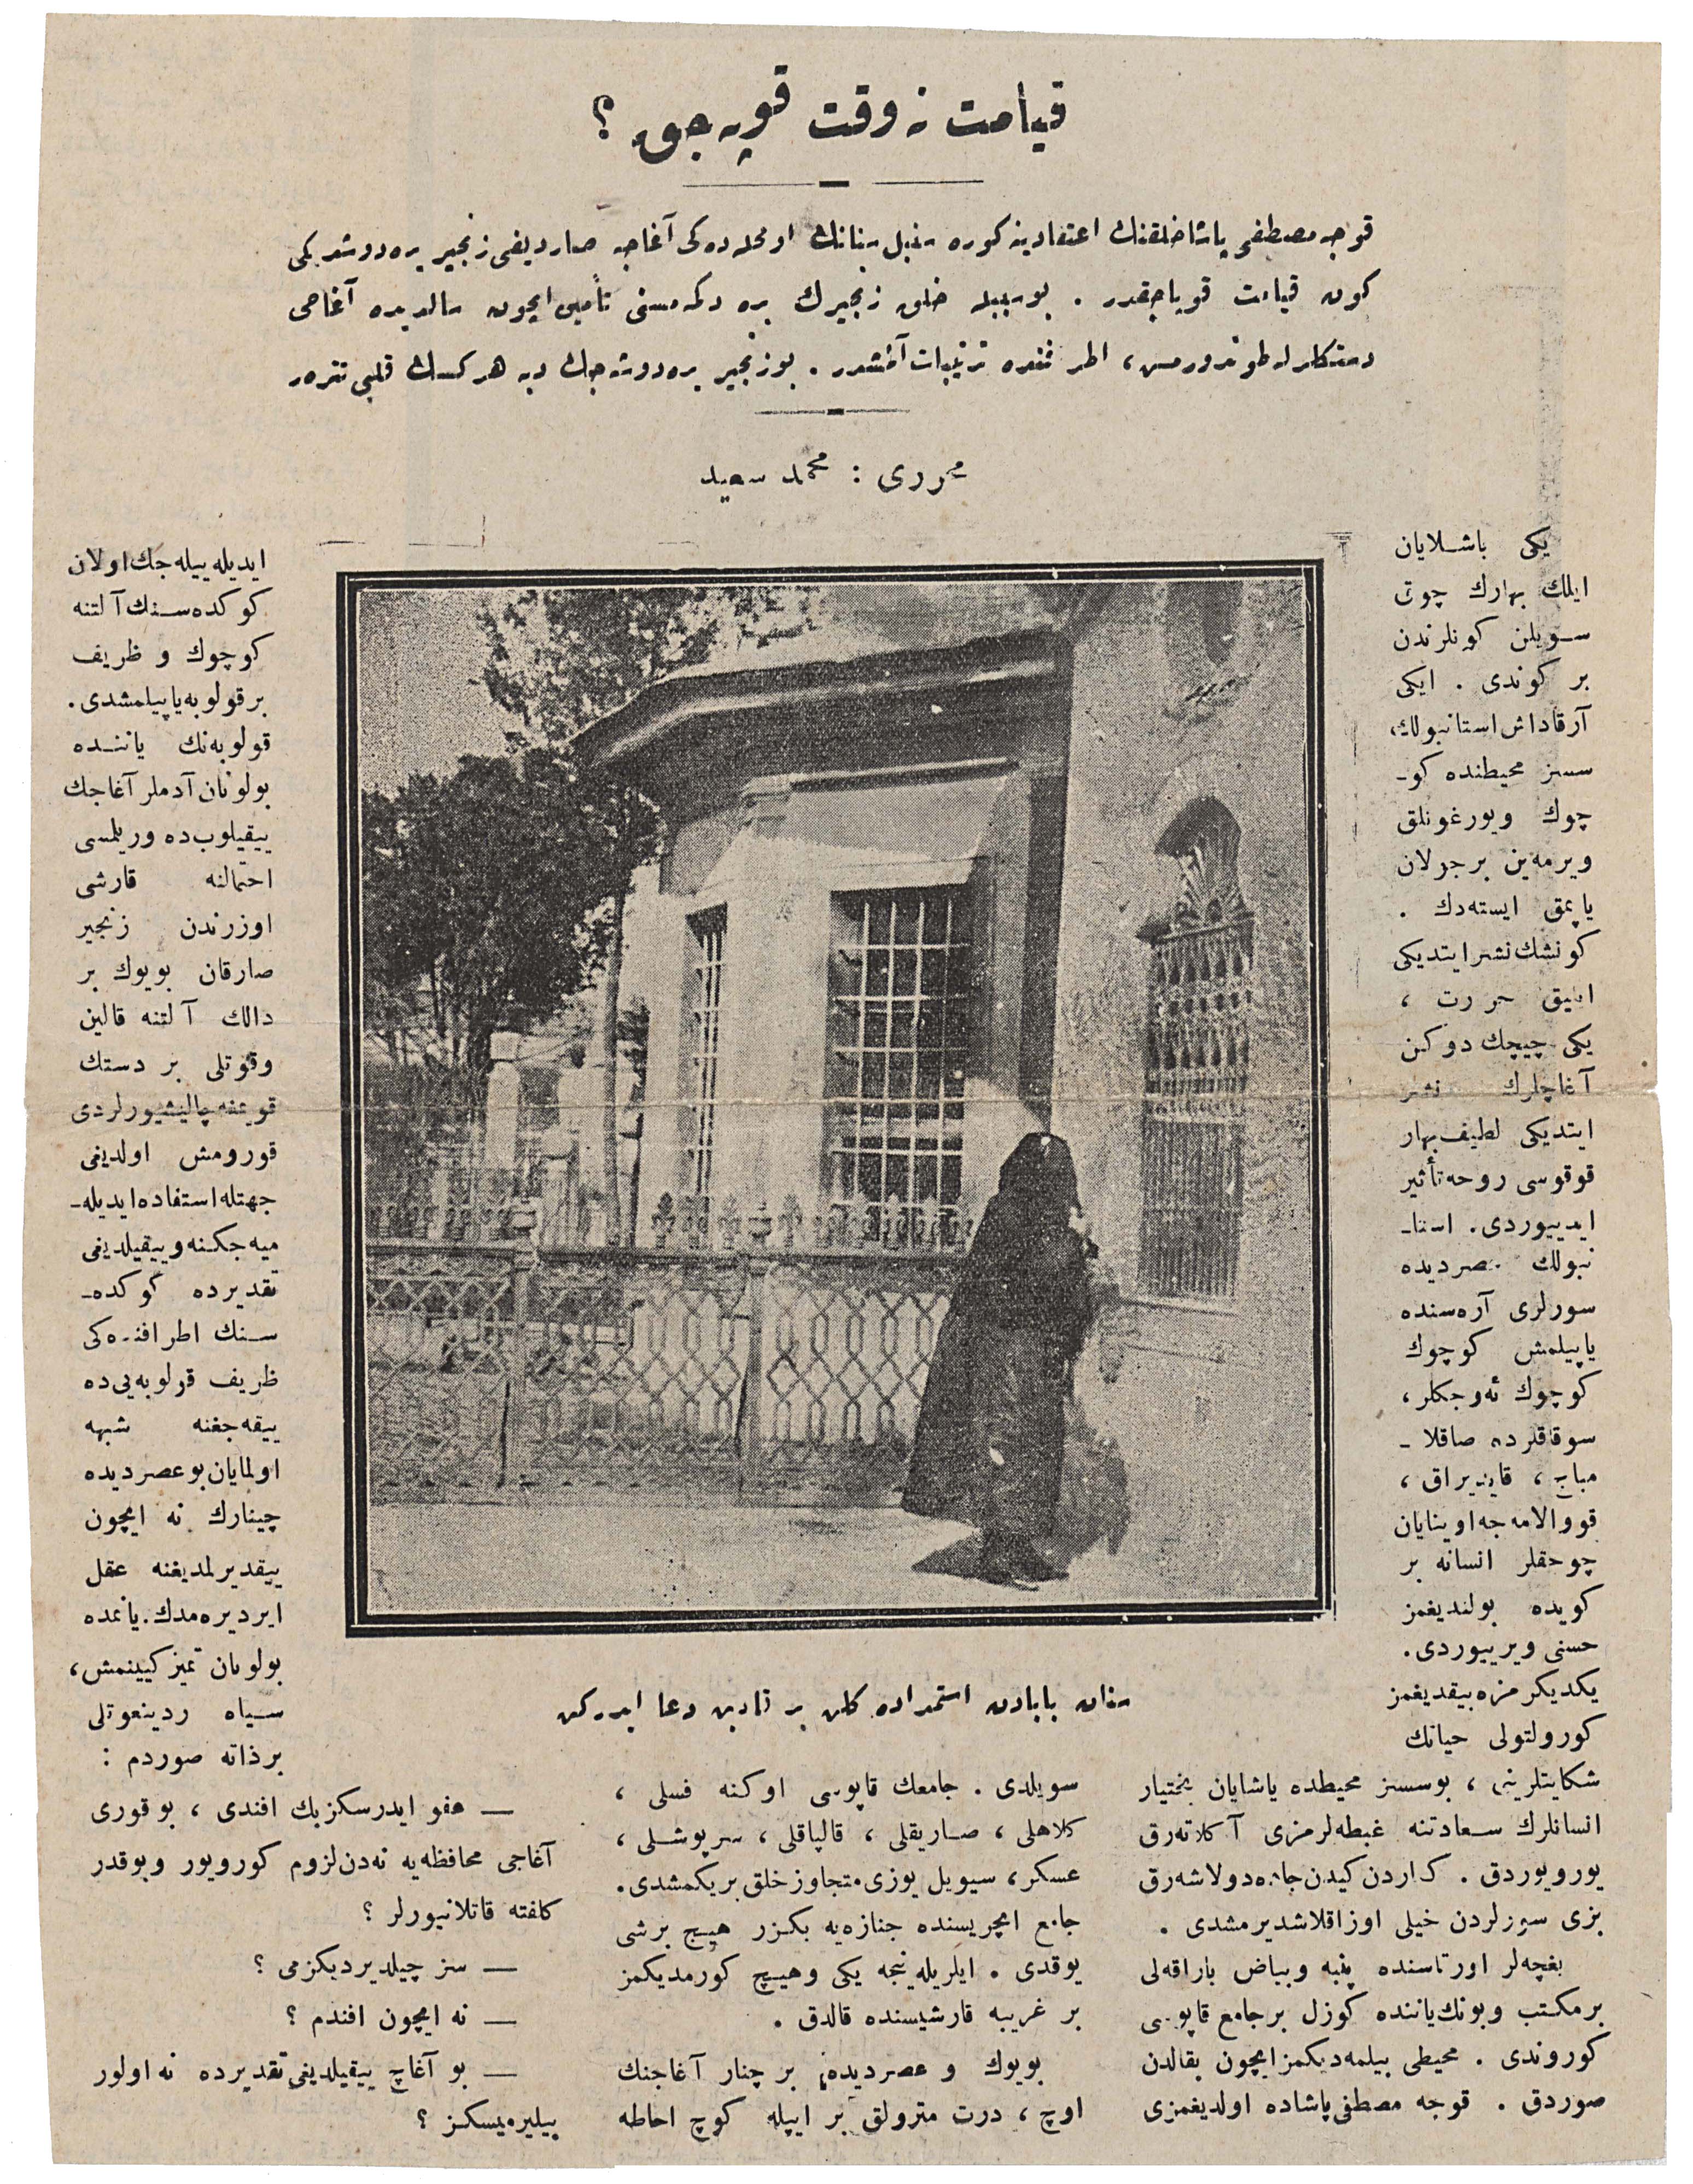 قیامت نه وقت قوپه جق ؟
قوجه مصطفی پاشا خلقنك اعتقادینه كوره سنبل سنانك او محلده كی آغاجه صاردیغی زنجیر یره دوشدیكی
كون قیامت قوپاجقدر . بو سببله خلق زنجیرك یره دكمه مسنی تأمین ایچون سالدیده آغاجی
دستكلرله طوتدورمش، اطرافنده ترتیبات آلمشدر . بو زنجیر یره دوشه جك دیه هركسك قلبی تتره ر
محرری : محمد سعید
یكی باشلایان
ایلك بهارك چوق
سویلن كونلرندن
بر كوندی . ایكی
آرقاداش استانبولك
سسز محیطنده كو-
چوك ویورغونلق
ویرمه ین برجولان
یاپمق ایسته دك .
كونشك نشر ایتدیكی
ایلیق حررت ،
یكی چیچك دوكن
آغاچلرك نشر
ایتدیكی لطیف بهار
قوقوسی روحه تأثیر
ایدییوردی . استا-
نبولك عصردیده
سورلری آره سنده
یاپیلمش كوچوك
كوچوك ئه وجكلر ،
سوقاقلرده صاقلا -
مباج ، قایدیراق ،
قووالامه جه اوینایان
چوجقلر انسانه بر
كویده بولندیغمز
حسنی ویرییوردی .
یكدیكرمزه ییقدیغمز
كورولتولی حیاتك
شكایتلرینی ، بوسسز محیطده یاشایان بختیار
انسانلرك سعادتنه غبطه لرمزی آكلاته رق
یورویوردق . كناردن كیدن جاده دولاشه رق
بزی سورلردن خیلی اوزاقلاشدیرمشدی .
بغچه لر اورتاسنده پنبه وبیاض باراقه لی
برمكتب وبونك یاننده كوزل برجامع قاپوسی
كوروندی . محیطی بیلمه دیكمز ایچون بقالدن
صوردق . قوجه مصطفی پاشاده اولدیغمزی
سنان بابادن استمداده كلن بر قادین دعا ایدركن
سویلدی . جامعك قاپوسی اوكنه فسلی ،
كلاهلی ، صاریقلی ، قالپاقلی ، سرپوشلی ،
عسكر ، سیویل یوزی متجاوز خلق بریكمشدی .
جامع ایچریسنده جنازه یه بكزر هیچ برشی
یوقدی . ایلریله ینجه یكی وهیچ كورمدیكمز
بر غریبه قارشیسنده قالدق .
بویوك و عصردیده بر چنار آغاجنك
اوچ ، درت مترولق بر ایپله كوچ احاطه
ایدیله بیله جك اولان
كوكده سنك آلتنه
كوچوك و ظریف
برقولوبه یاپیلمشدی .
قولوبه نك یاننده
بولونان آدملر آغاجك
ییقیلوب ده وریلمسی
احتمالنه قارشی
اوزرندن زنجیر
صارقان بویوك بر
دالك آلتنه قالین
وقوتلی بر دستك
قویمغه چالیشیورلردی
قورومش اولدیغی
جهتله استفاده ایدیله-
میه جكنه وییقیلدیغی
تقدیرده كوكده-
سنك اطرافنده كی
ظریف قولوبه یی ده
ییقه جغنه شبهه
اولمایان بو عصردیده
چینارك نه ایچون
ییقدیرلمدیغنه عقل
ایردیره مدك . یانمده
بولونان تمیز كیینمش ،
سیاه ردینغوتلی
برذاته صوردم :
— عفو ایدرسكز بك افندی ، بو قوری
آغاجی محافظه یه نه دن لزوم كورویور وبوقدر
كلفته قاتلانیورلر ؟
— سز چیلدیردیكزمی ؟
— نه ایچون افندم ؟
— بو آغاچ ییقیلدیغی تقدیرده نه اولور
بیلیرمیسكز ؟